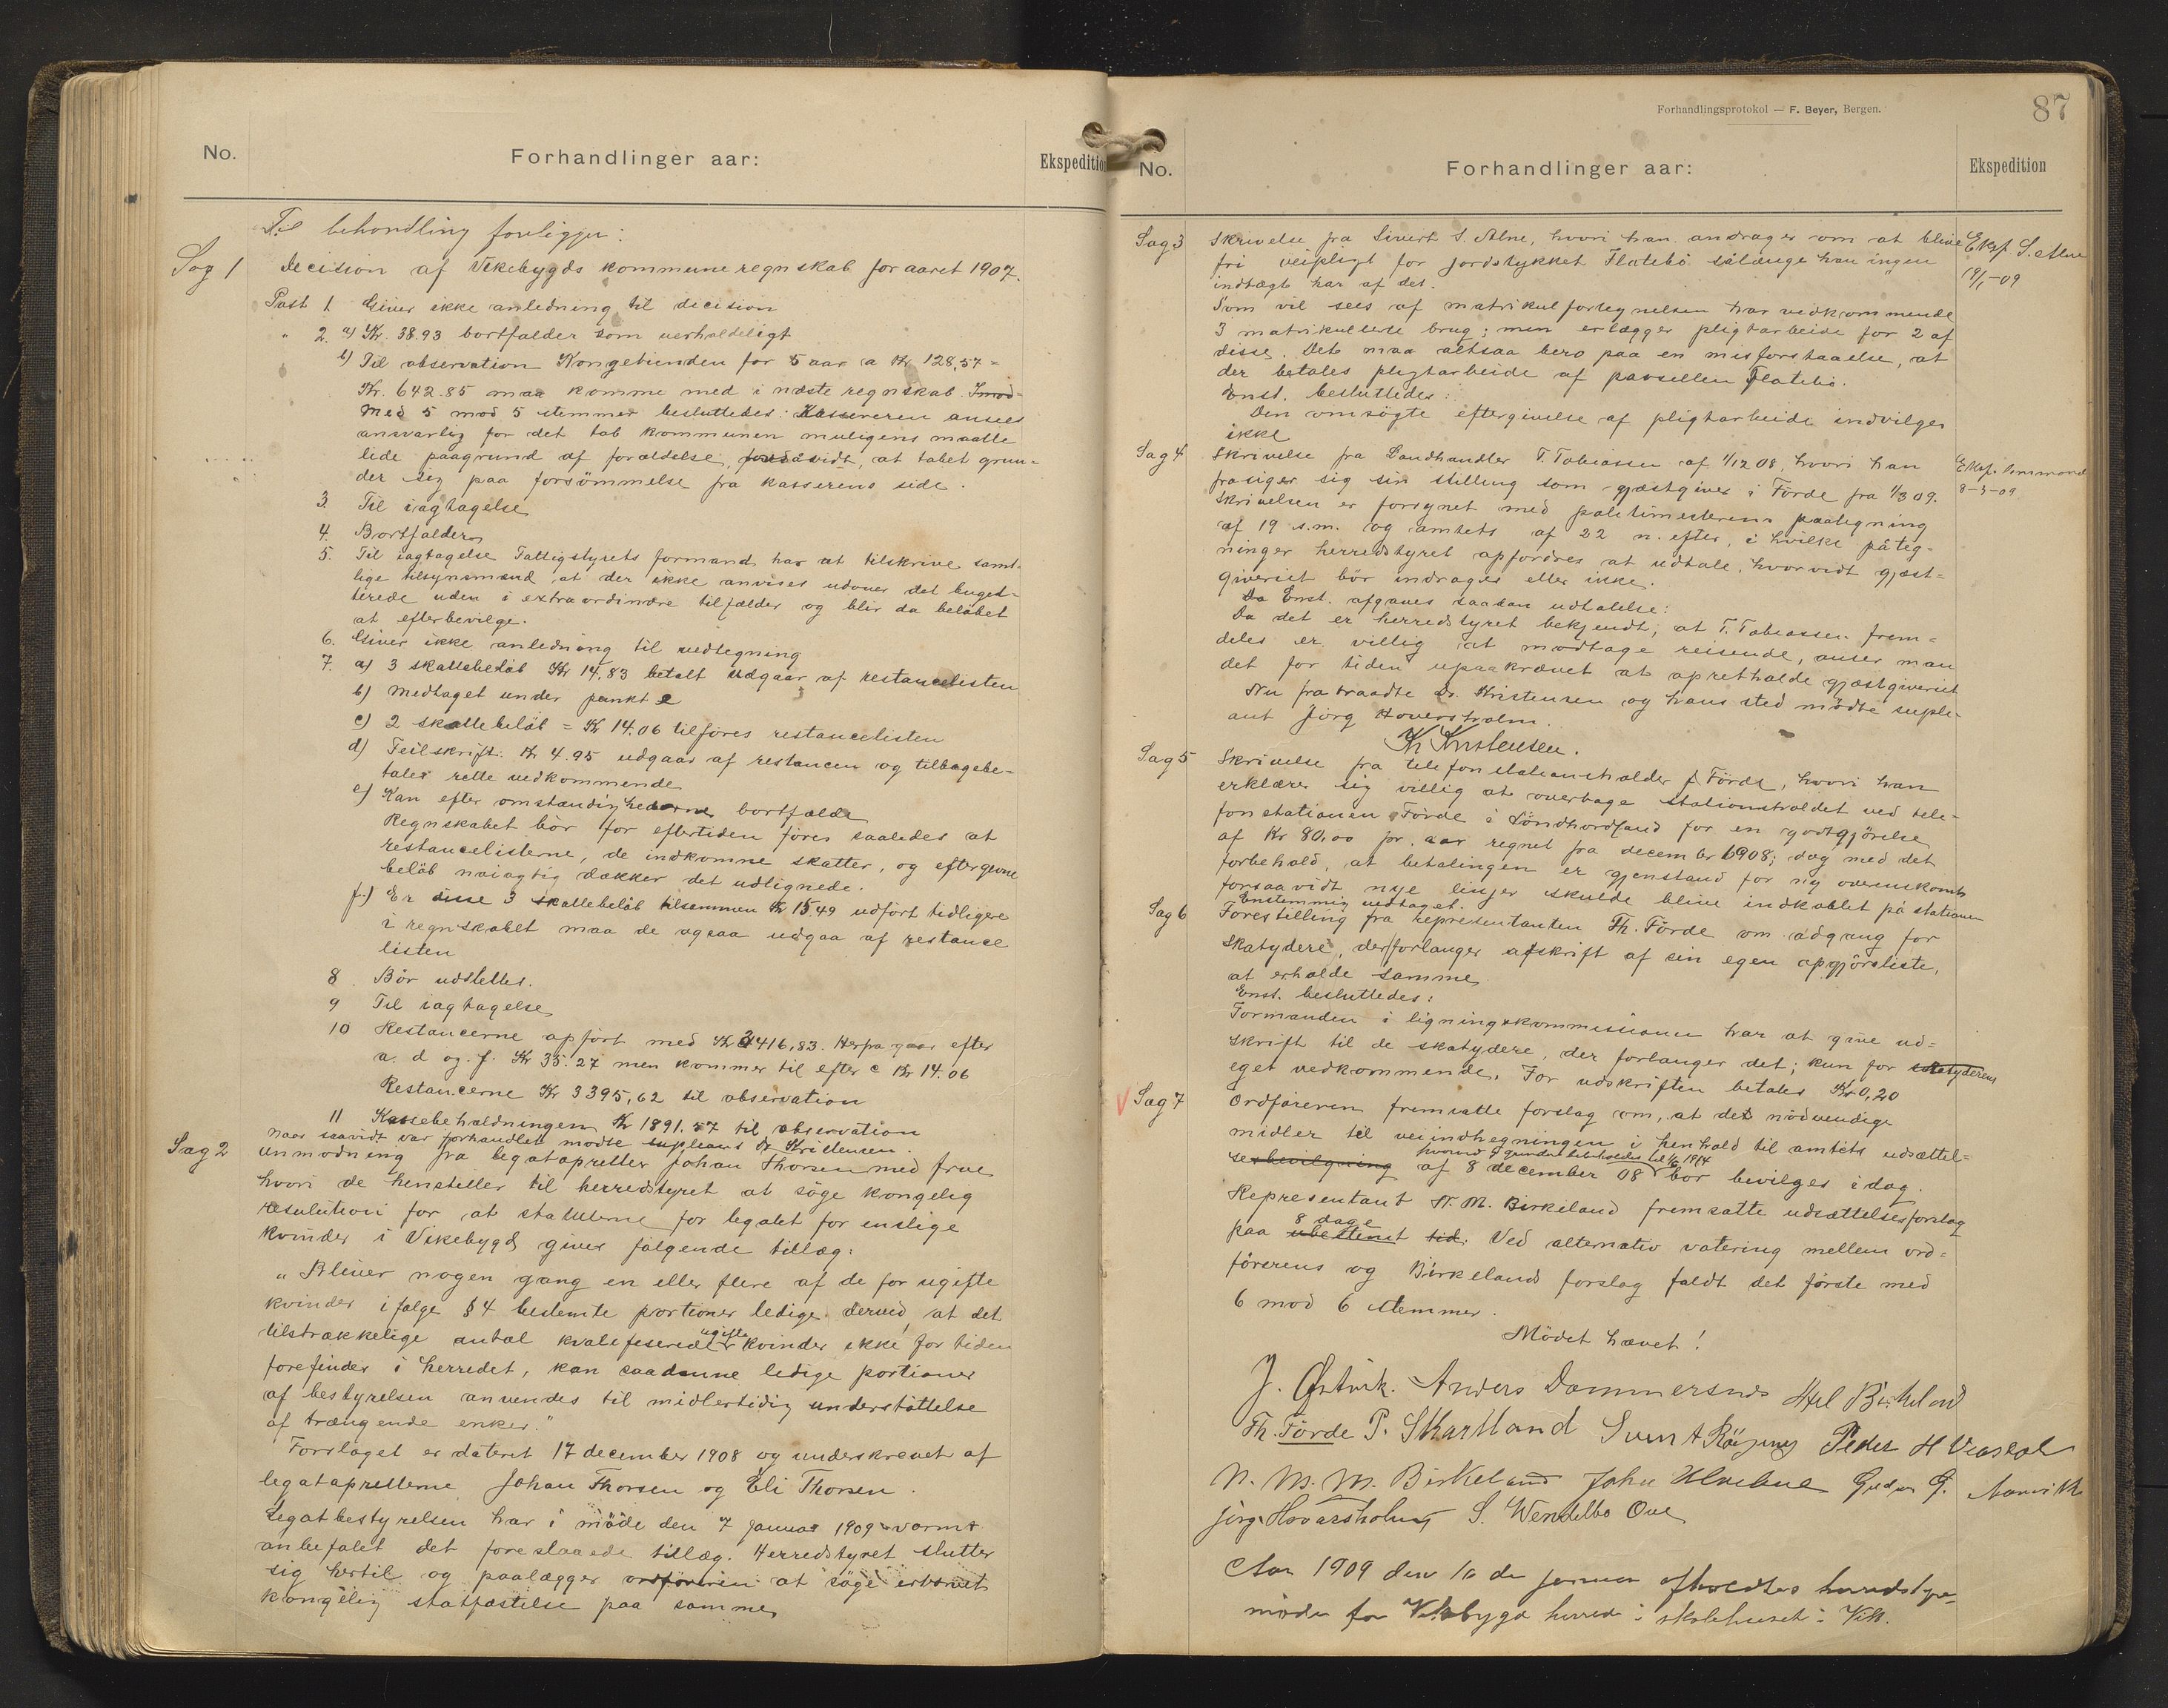 No.
Forhandlinger aar:
Ekspeditio
Til behandling foreligger:
Sag 1
Decision af Vikebygds kommuneregnskab for aaret 1907.
Post 1. Giver ikke anledning til decision
" 2. a) Kr. 38.93 bortfalder som uerholdeligt
b) Til observation Kongetienden for 5 aar a Kr 128,57 =
Kr. 642.85 maa komme med i næste regnskab.
Med 5 mod 5 stemmer besluttedes: Kassereren ansees
ansvarlig for det tab kommunen muligens maatte
lide paagrund af forældelse, forsåvidt, at tabet grun-
der sig paa forsömmelse fra kasserens side.
3. Til iagtagelse
4. Bortfalder
5. Til iagtagelse Fattigstyrets formand har at tilskrive samt-
lige tilsynsmænd, at der ikke anvises udover det buget-
terede uden i extraordinære tilfælder og blir da belöbet
at efterbevilge.
6. Giver ikke anledning til vedtegning
7. a) 3 skattebelöb Kr 14,83 betalt udgaar af restancelisten
b) Medtaget under punkt 2
c) 2 skattebelöb = Kr 14.06 tilföres restancelisten
d) Feilskrift. Kr 4.95 udgaar af restancen og tilbagebe-
tales rette vedkommende
e) Kan efter omstændighederne bortfalde
Regnskabet bör for eftertiden föres saaledes at
restancelisterne, de indkomne skatter, og eftergivne
belöb nöiagtig dækker det udlignede.
f.) Er disse 3 skattebelöb tilsammen Kr 15,49 udfört tidligere
i regnskabet maa de ogsaa udgaa af restance
listen
8. Bör udslettes.
9 Til iagtagelse
10 Restancerne opfört med Kr 3416,83. Herfra gaar efter
a. d og. f. Kr 35.27 men kommer til efter c Kr 14.06
Restancerne Kr 3395,62 til observation
11 Kassebeholdningen Kr 1891.57 til observation
Naar saavidt var forhandlet mödte supleant Dr Kristensen.
Sag 2
Anmodning fra legatopretter Johan Thorsen med frue
hvori de henstiller til herredstyret at söge kongelig
resulution for at statuterne for legatet for enslige
kvinder i Vikebygd gives fölgende tillæg:
"Bliver nogen gang en eller flere af de for ugifte
kvinder ifölge § 4 bestemte portioner ledige derved, at det
ugifte
tilstrækkelige antal kvalifiserede kvinder ikke for tiden
forefindes i herredet, kan saadanne ledige portioner
af bestyrelsen anvendes til midlertidig understöttelse
af trængende enker."
Forslaget er dateret 17 december 1908 og underskrevet af
legatopretterne Johan Thorsen og Eli Thorsen.
Legatbestyrelsen har i möde den 7 januar 1909 varmt
anbefalet det foreslaaede tillæg. Herredstyret slutter
sig hertil og paalægger ordföreren at söge erhvervet
kongelig stadfæstelse paa samme
Forhandlingsprotokol — F. Beyer, Bergen.
87
No.
Forhandlinger aar:
Ekspedition
Sag 3
Skrivelse fra Sivert S. Alne, hvori han andrager om at blive
fri veipligt for jordstykket Flatebö sålænge han ingen
indtægt har af det.
Eksp S. Alne
19/1-09
Som vil sees af matrikulfortegnelsen har vedkommende
3 matrikulerte brug; men erlægger pligtarbeide for 2 af
disse. Det maa altsaa bero paa en misforstaaelse, at
der betales pligtarbeide af parsellen Flatebö.
Enst. besluttedes:
Den omsögte eftergivelse af pligtarbeide indvilges
ikke
Sag 4
Skrivelse fra Landhandler T. Tobiassen af 1/12 08, hvori han
frasiger sig sin stilling som gjæstgiver i Förde fra 1/3 09.
8-3-09
Skrivelsen er forsynet med politimesterens paategning
af 19 s.m. og amtets af 22 n. efter, i hvilke påteg-
ninger herredstyret opfordres at udtale, hvorvidt gjæst-
giveriet bör indrages eller ikke.
Da Enst. afgaves saadan udtalelse:
Da det er herredstyret bekjendt, at T. Tobiassen frem-
deles er villig at modtage reisende, anser man
det for tiden upaakrævet at opretholde gjæstgiveriet
Nu fratraadte Dr. Kristensen og hans sted mödte suple-
ant Jörg Hovarsholm.
Kr Kristensen.
Sag 5
Skrivelse fra telefonstationsholder i Förde, hvori han
erklærer sig villig at overtage stationsholdet ved tele-
fonstationen Förde i Söndhordland for en godtgjörelse
af Kr 80,00 pr. aar regnet fra december 1908; dog med det
forbehold, at betalingen er gjenstand for ny overenskomst
forsaavidt nye linjer skulde blive indkoblet på stationen
Enstemmig vedtaget.
Sag 6
Forestilling fra representanten Th. Förde om adgang for
skatydere, der forlanger afskrift af sin egen opgjörsliste,
at erholde samme
Enst. besluttedes:
Formanden i ligningskommissionen har at give ud-
skrift til de skatydere, der forlanger det; kun for skatyderens
eget vedkommende. For udskriften betales Kr 0,20
Sag 7
Ordföreren fremsatte forslag om, at det nödvendige
midler til veiindhegningen i henhold til amtets udsættel-
se af 8 december 08 bör bevilges idag.
Representant N. M. Birkeland fremsatte udsættelsesforslag
8 dage
paa ubestemt tid. Ved alternativ votering mellem ord-
förerens og Birkelands forslag faldt det förste med
6 mod 6 stemmer.
Mödet hævet!
J. Östvik. Anders Dommersnes Hel Birkeland
Th. Förde P. Skartland
N. M. M. Birkeland
Jörg Hovarsholm S. Wendelbo Oue
Aar 1909 den 16 de januar afholdtes herredstyre-
möde for Vikebygd herred i skolehuset i Vik.